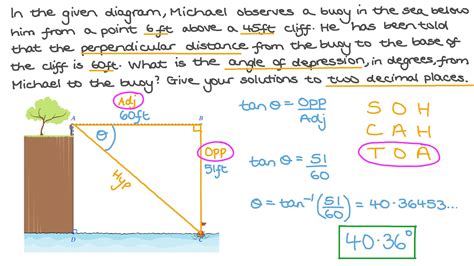 In the given diagram, Michael observes a buoy in the sea below
him from a point 6ft above a 45ft cliff. He has been told
that the perpendicular distance from the buoy to the base of
the cliff is 60ft. What is the angle of depression, in degrees, from
Michael to the buoy? Give your solutions to two decimal places.
Adj
60ft
A
B
θ
Hyp
OPP
51ft
D
C
tan θ = OPP
Adj
tan θ = 51
60
θ = tan⁻¹(51/60) = 40·36453...
40·36°
S O H
C A H
T O A